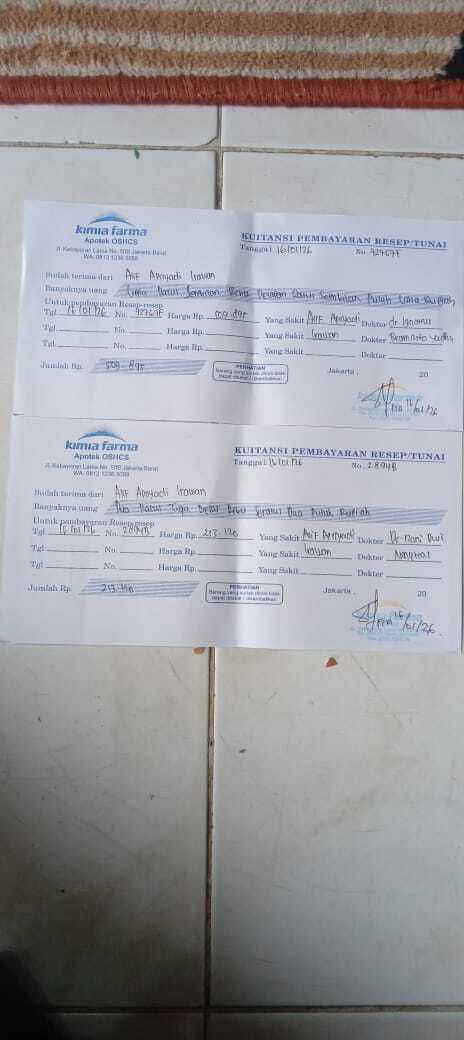 kimia farma
Apotek OSHCS
Jl. Kebayoran Lama No. 50B Jakarta Barat
WA. 0812 1236 5088
KUITANSI PEMBAYARAN RESEP/TUNAI
Tanggal 16/01/26 No 92767F
Sudah terima dari Arif Apriyadi Irawan
Banyaknya uang Lima Ratus Sembilan Ribu Delapan Ratus Sembilan Puluh Lima Rupiah
Untuk pembayaran Resep-resep
Tgl 16/01/26 No. 92767F Harga Rp. 509.895 Yang Sakit Arif Apriyadi Dokter dr. Ignatius
Tgl. No. Harga Rp. Yang Sakit Irawan Dokter
Tgl. No. Harga Rp. Yang Sakit Dokter
Jumlah Rp. 509.895
PERHATIAN
Barang yang sudah dibeli tidak
dapat ditukar / dikembalikan
Jakarta , 20
16/01/26
kimia farma
Apotek OSHCS
Jl. Kebayoran Lama No. 50B Jakarta Barat
WA. 0812 1236 5088
KUITANSI PEMBAYARAN RESEP/TUNAI
Tanggal 16/01/26 No. 2894B
Sudah terima dari Arif Apriyadi Irawan
Banyaknya uang Dua Ratus Tiga Belas Ribu Seratus Dua Puluh Rupiah
Untuk pembayaran Resep-resep
Tgl 16/01/26 No. 2894B Harga Rp. 213.120 Yang Sakit Arif Apriyadi Dokter Dr. Rani
Tgl No. Harga Rp. Yang Sakit Irawan Dokter
Tgl No. Harga Rp. Yang Sakit Dokter
Jumlah Rp. 213.120
PERHATIAN
Barang yang sudah dibeli tidak
dapat ditukar / dikembalikan
Jakarta , 20
16/01/26